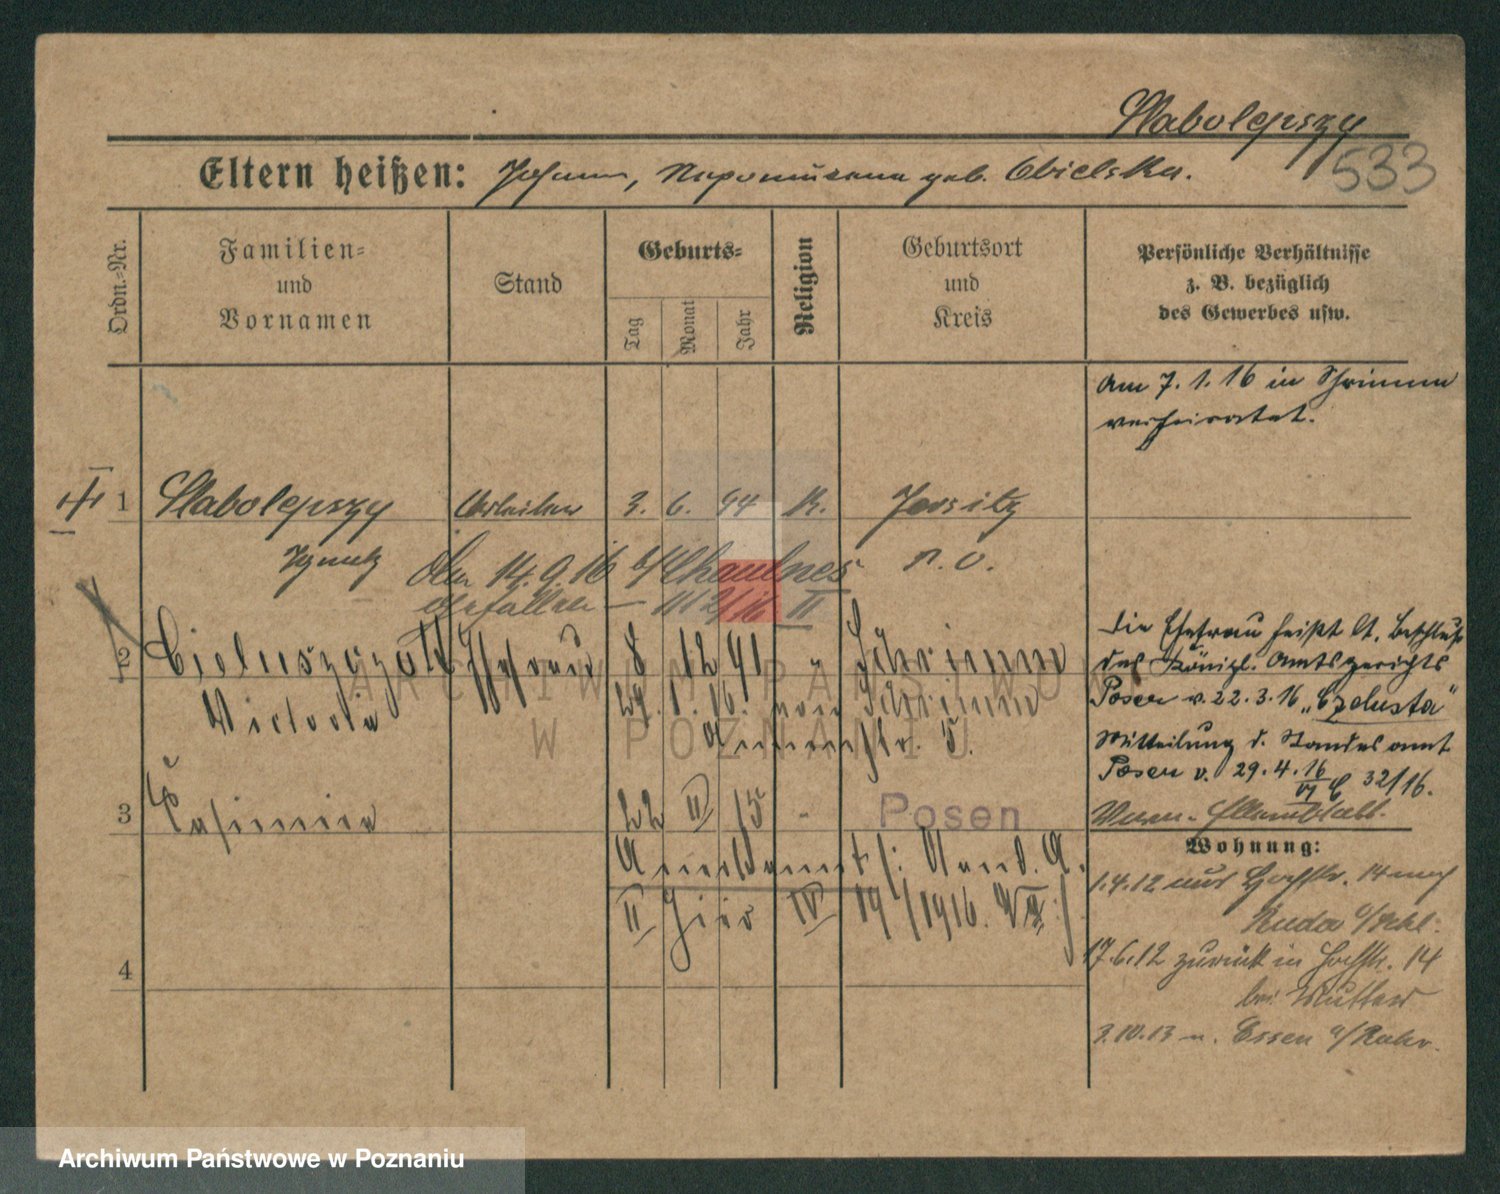 Slabolepszy
533
Eltern heißen: Johann, Nepomucena geb. Obielska.
Ordn.=Nr.
Familien=
und
Vornamen
Stand
Geburts=
Tag
Monat
Jahr
Religion
Geburtsort
und
Kreis
Persönliche Verhältnisse
z. B. bezüglich
des Gewerbes usw.
Am 7. 1. 16 in Schrimm
verheiratet.
1 Slabolepszy Arbeiter 3. 6. 94 K. Jersitz
Ignatz
P. O.
Am 14. 9. 16 b/ Chaulnes
gefallen – 1112/16 II
2 Cieluszczak Ehefrau 8 12 91 Schrimm
Victoria
29. 1. 16. von Schrimm
5.
Die Ehefrau heißt lt. Beschluß
des Königl. Amtsgerichts
Posen v. 22. 3. 16 „Czelusta"
Mitteilung d. Standesamt
Posen v. 29. 4. 16
VI 32/16.
3 Casimira 22 II 15 - Posen
Anerkannt Stand. A.
II hier IV 19 /1916.
4
Wohnung:
1.4.12 nach
Ruda
17.6.12 zurück in 14
bei Mutter
3.10.13 n. Essen a/Ruhr.
ARCHIWUM PAŃSTWOWE
W POZNANIU
Archiwum Państwowe w Poznaniu